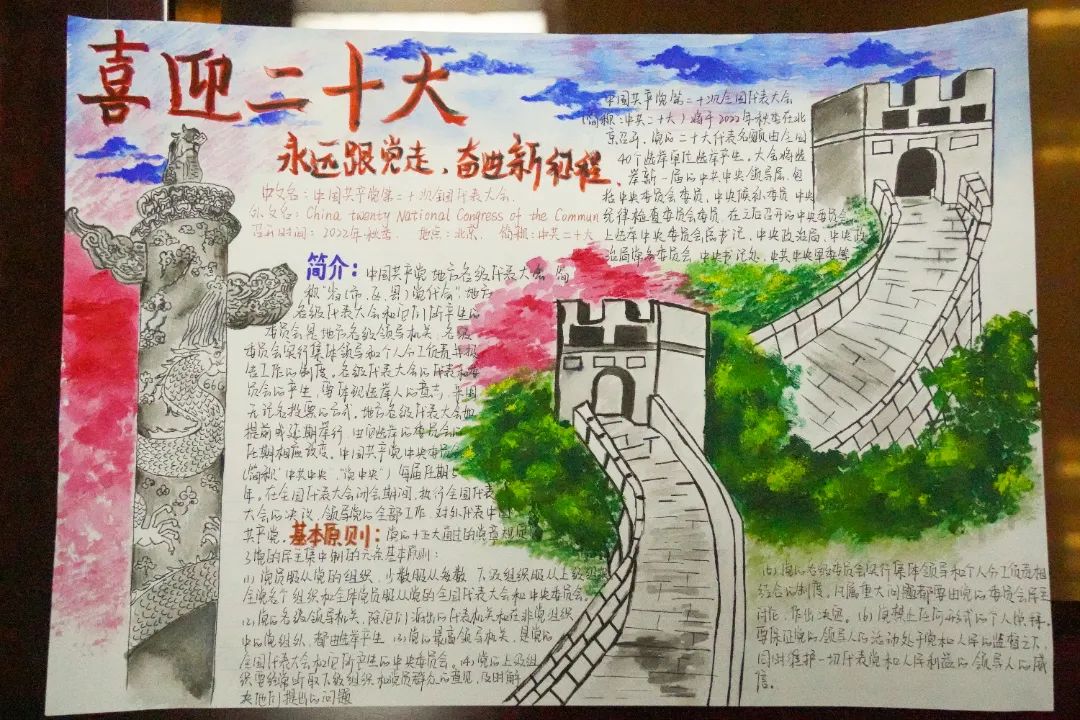 喜迎二十大
永远跟党走，奋进新征程
中文名：中国共产党第二十次全国代表大会
外文名：China twenty National Congress of the Commun
召开时间：2022年秋季 地点：北京 简称：中共二十大
中国共产党第二十次全国代表大会
(简称：中共二十大)将于2022年秋季在北
京召开，党的二十大代表名额由全国
40个选举单位选举产生。大会将选
举新一届的中共中央领导层，包
括中央委员会委员，中央候补委员 中央
纪律检查委员会委员
上选举中央委员会总书记，中央政治局、中央政
治局常务委员会，中央书记处，中共中央军委等
简介：中国共产党地方各级代表大会 简
称"省(市、区、县)党代会"地方
各级代表大会和它们所产生的
委员会是地方各级领导机关，各级
委员会实行集体领导和个人分工负责相结
合工作的制度，各级代表大会的代表和委
员会的产生，要体现选举人的意志，采用
无记名投票的方式。地方各级代表大会如
提前或延期举行，由它选举的委员会的
任期相应改变。中国共产党中央委员会
(简称"中共中央"，"党中央")每届任期5
年。在全国代表大会闭会期间，执行全国代表
大会的决议，领导党的全部工作，对外代表中国
共产党。基本原则：党的十五大通过的党章规定
了党的民主集中制的六条基本原则：
(1)党员服从党的组织，少数服从多数 下级组织服从上级组织
全党各个组织和全体党员服从党的全国代表大会和中央委员会。
(2)党的各级领导机关，除它们派出的代表机关和在非党组织
中的党组外，都由选举产生 (3)党的最高领导机关，是党的
全国代表大会和它所产生的中央委员会。(4)党的上级组
织要经常听取下级组织和党员群众的意见，及时解
决他们提出的问题
(5)党的各级委员会实行集体领导和个人分工负责相
结合的制度，凡属重大问题都要由党的委员会民主
讨论，作出决定。(6)党禁止任何形式的个人崇拜。
要保证党的领导人的活动处于党和人民的监督之下，
同时维护一切代表党和人民利益的领导人的威
信。